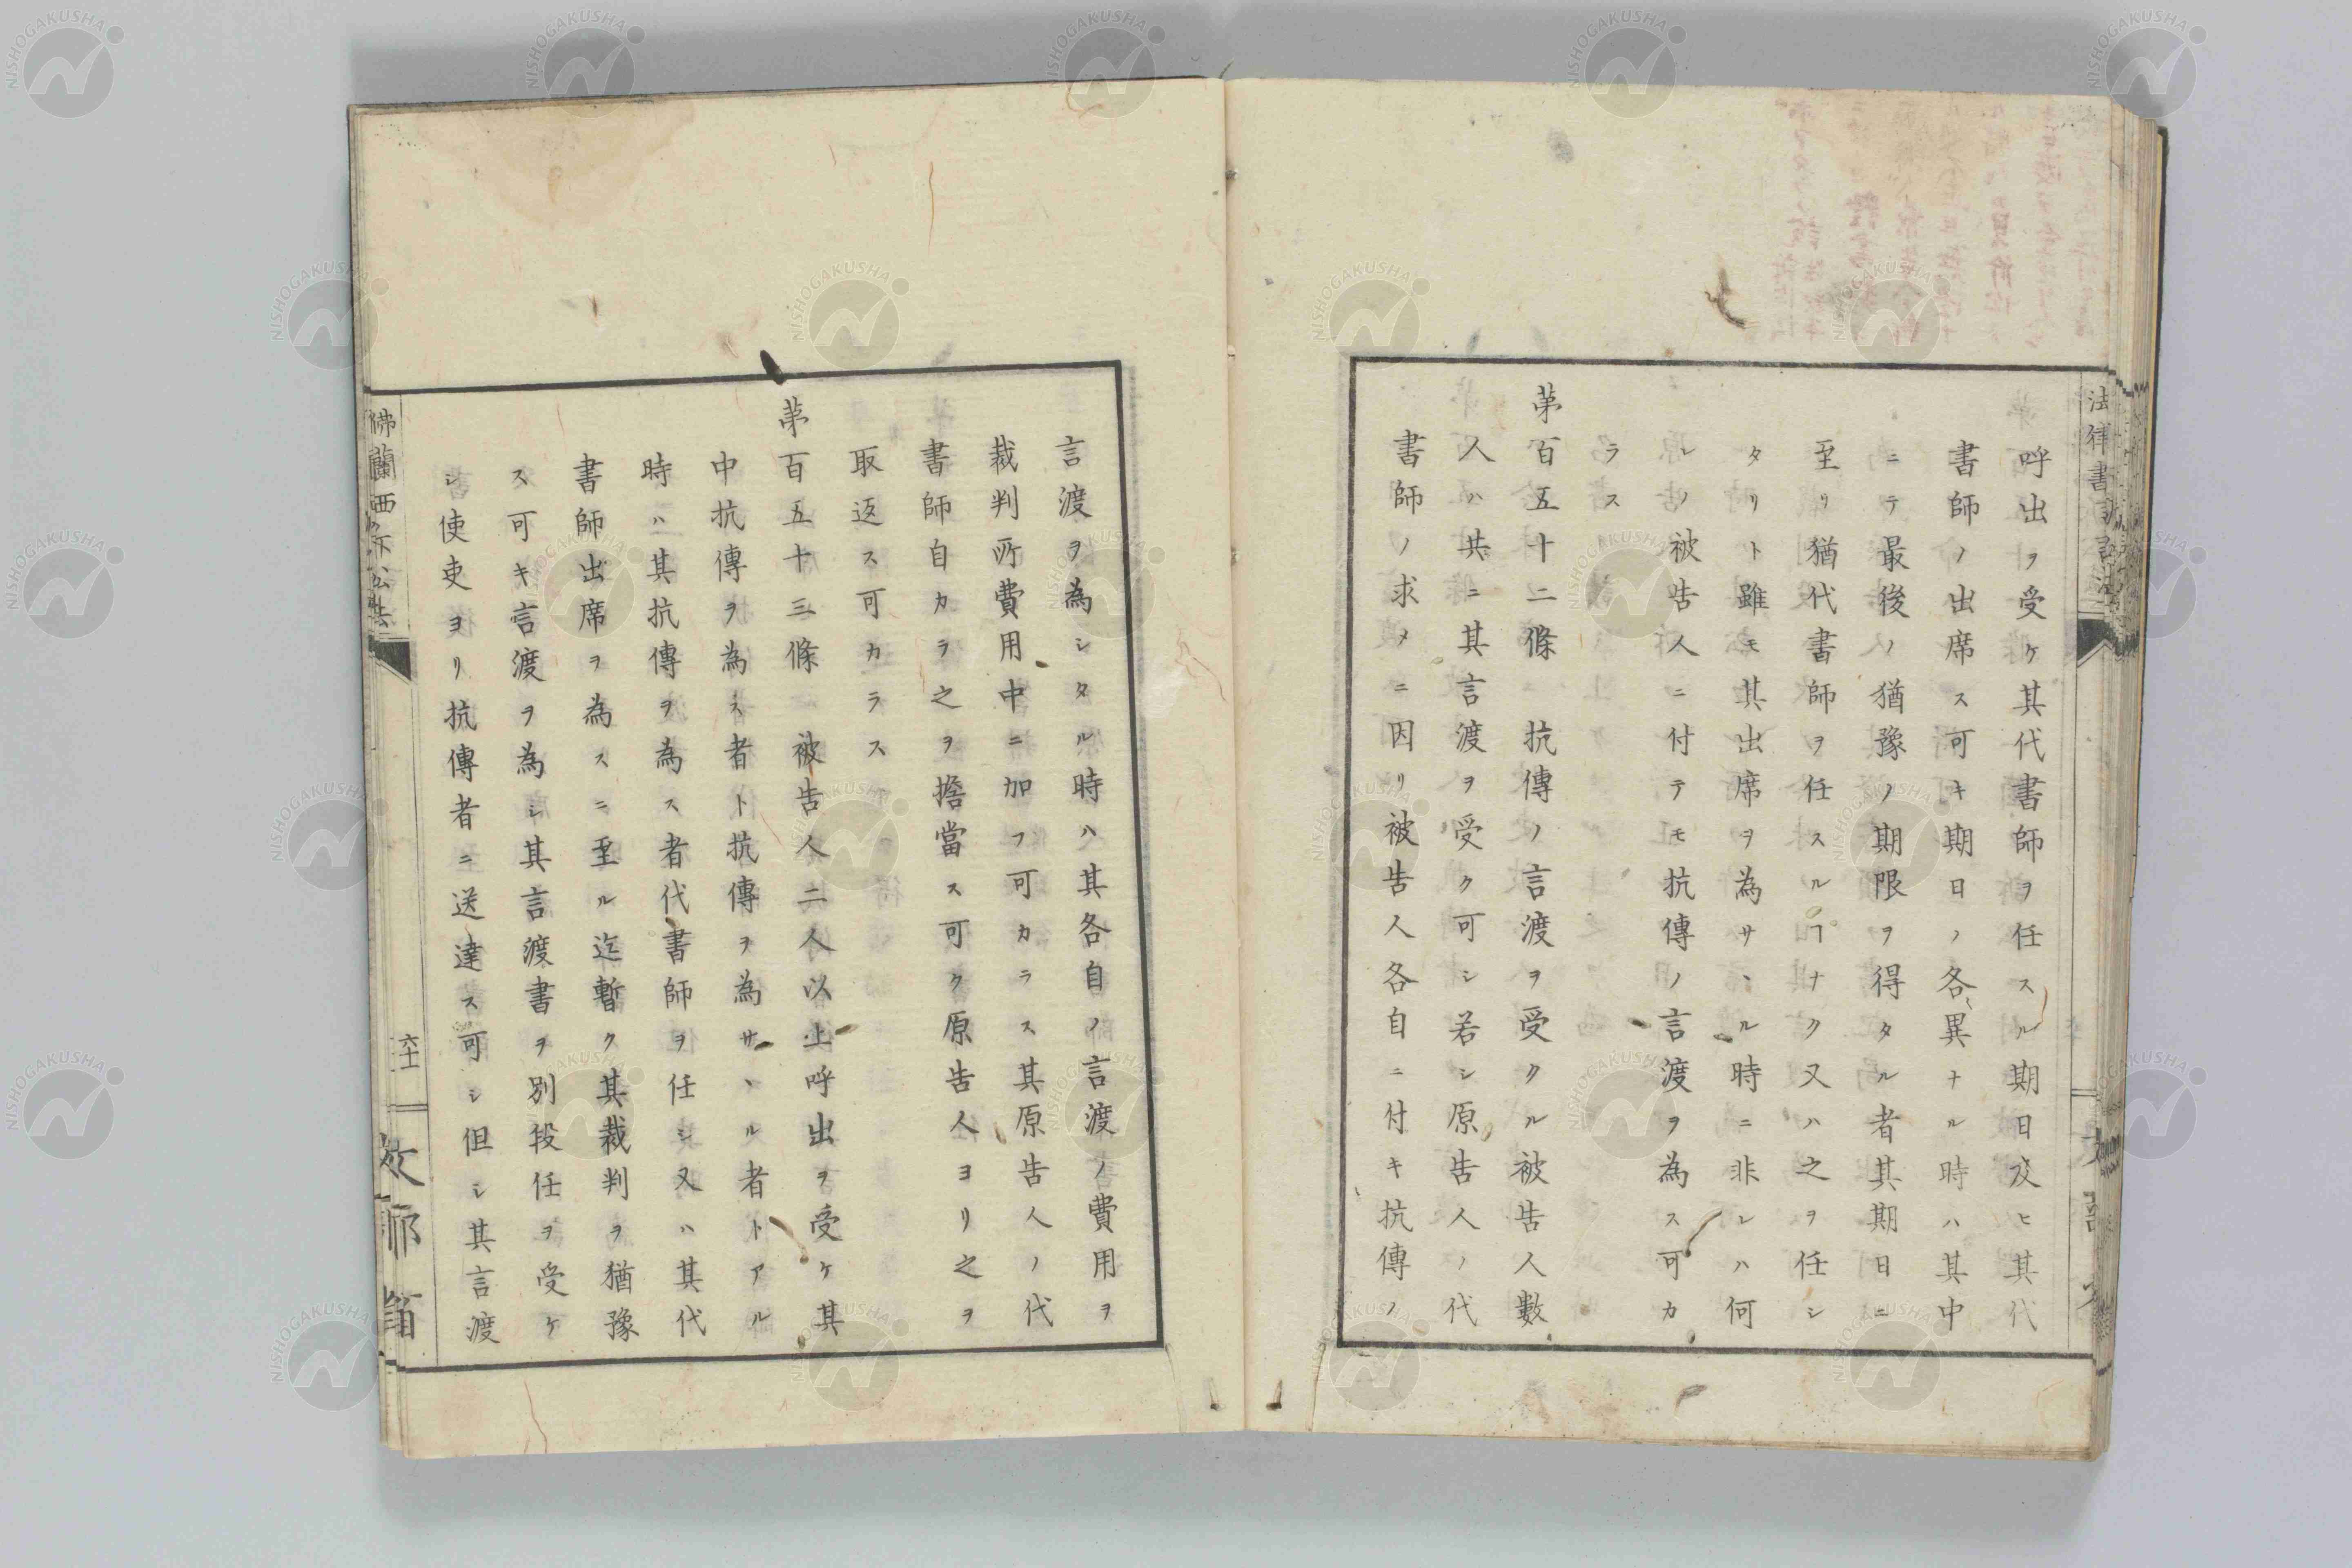 呼出ヲ受ケ其代書師ヲ任スル期日及ヒ其代
書師ノ出席ス可キ期日ノ各異ナル時ハ其中
ニテ最後ノ猶豫ノ期限ヲ得タル者其期日ニ
至リ猶代書師ヲ任スルヿナク又ハ之ヲ任シ
タリト雖モ其出席ヲ為サヽル時ニ非レハ何
レノ被告人ニ付テモ抗傳ノ言渡ヲ為ス可カ
ラス
第百五十二條 抗傳ノ言渡ヲ受クル被告人數
人ハ共ニ其言渡ヲ受ク可シ若シ原告人ノ代
書師ノ求メニ因リ被告人各自ニ付キ抗傳ノ
言渡ヲ為シタル時ハ其各自ノ言渡ノ費用ヲ
裁判所費用中ニ加フ可カラス其原告人ノ代
書師自カラ之ヲ擔當ス可ク原告人ヨリ之ヲ
取返ス可カラス
第百五十三條 被告人二人以上呼出ヲ受ケ其
中抗傳ヲ為ス者ト抗傳ヲ為サヽル者トアル
時ハ其抗傳ヲ為ス者代書師ヲ任シ又ハ其代
書師出席ヲ為スニ至ル迄暫ク其裁判ヲ猶豫
ス可キ言渡ヲ為シ其言渡書ヲ別段任ヲ受ケ
シ使吏ヨリ抗傳者ニ送達ス可シ但シ其言渡
佛蘭西
六十一
NISHOGAKUSHA